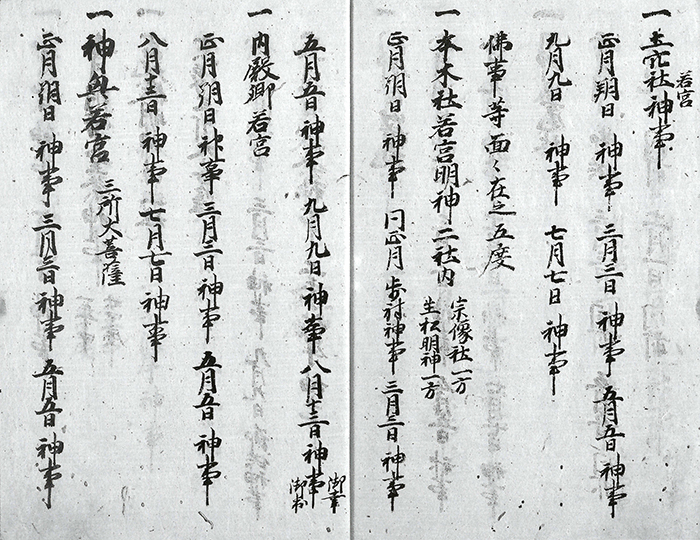 一 土穴社神事
若宮
正月朔日 神事 三月三日 神事 五月五日 神事
九月九日 神事 七月七日 神事
佛事等面々在之五度
一 本木社若宮明神二社内
宗像社一方
生松明神一方
正月朔日 神事 同正月歩射神事 三月三日 神事
五月五日 神事 九月九日 神事 八月十三日 神事
御幸
一 内殿郷若宮
正月朔日 神事 三月三日 神事 五月五日 神事
八月十三日 神事 七月七日 神事
一 神興若宮 三所大菩薩
正月朔日 神事 三月三日 神事 五月五日 神事